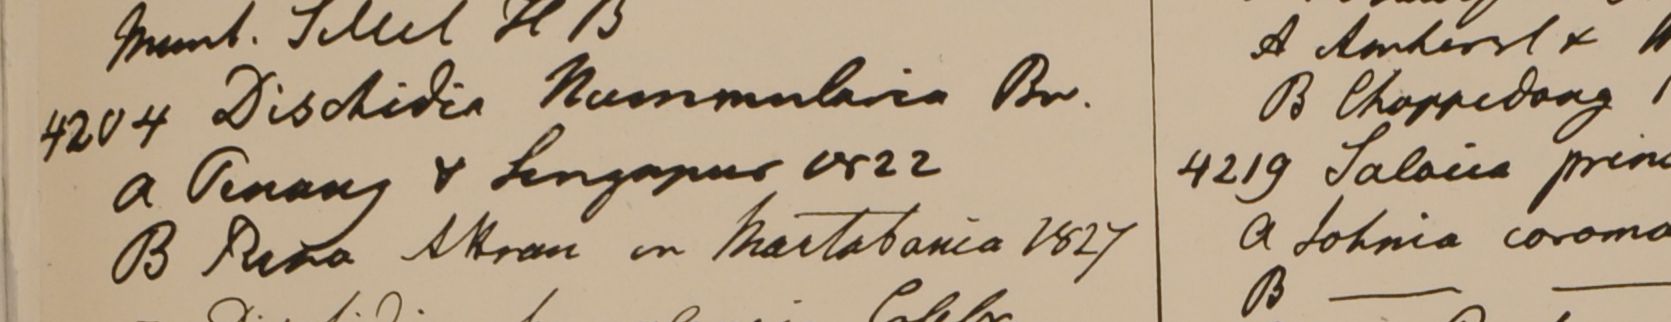 Munt. Sillet H B
4204 Dischidia Nummularia Br.
a Penang & Singapur 1822
B Ripa Attran in Martabania 1827
Dischidia
A Amherst &
B Choppedong
4219 Salacia prin
a Johnia coroma
B — —